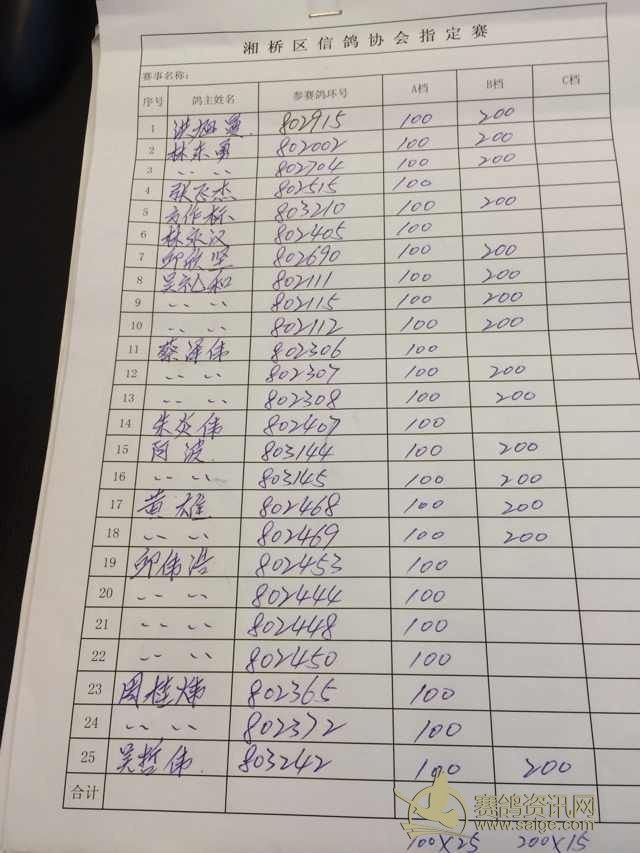 湘桥区信鸽协会指定赛
赛事名称:
序号 鸽主姓名 参赛鸽环号 A档 B档 C档
1 802915 100 200
2 林东勇 802002 100 200
3 〃 〃 802704 100 200
4 张飞杰 802515 100
5 方作标 803210 100 200
6 林永汉 802405 100
7 802690 100 200
8 吴礼和 802111 100 200
9 〃 〃 802115 100 200
10 〃 〃 802112 100 200
11 蔡泽伟 802306 100
12 〃 〃 802307 100 200
13 〃 〃 802308 100 200
14 朱炎伟 802407 100
15 阿波 803144 100 200
16 〃 〃 803145 100 200
17 黄雄 802468 100 200
18 〃 〃 802469 100 200
19 伟浩 802453 100
20 〃 〃 802444 100
21 〃 〃 802448 100
22 〃 〃 802450 100
23 周桂炜 802365 100
24 〃 〃 802372 100
25 吴哲伟 803242 100 200
合计
100×25 200×15
赛鸽资讯网
www.saige.com